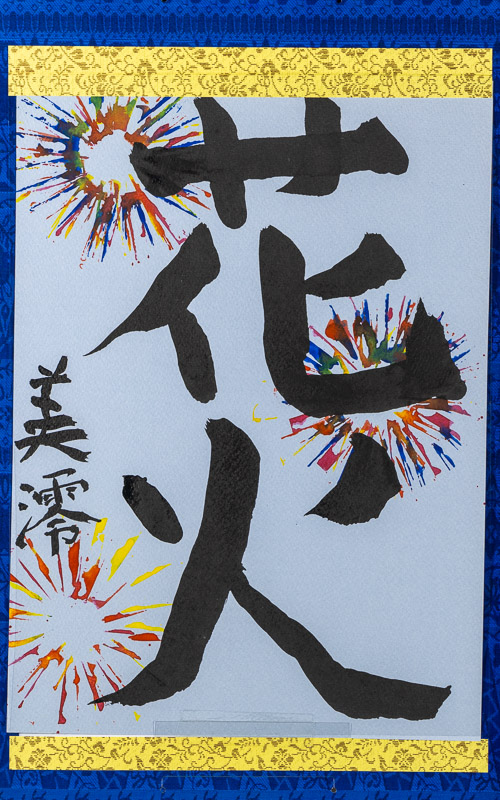 花火
美澪